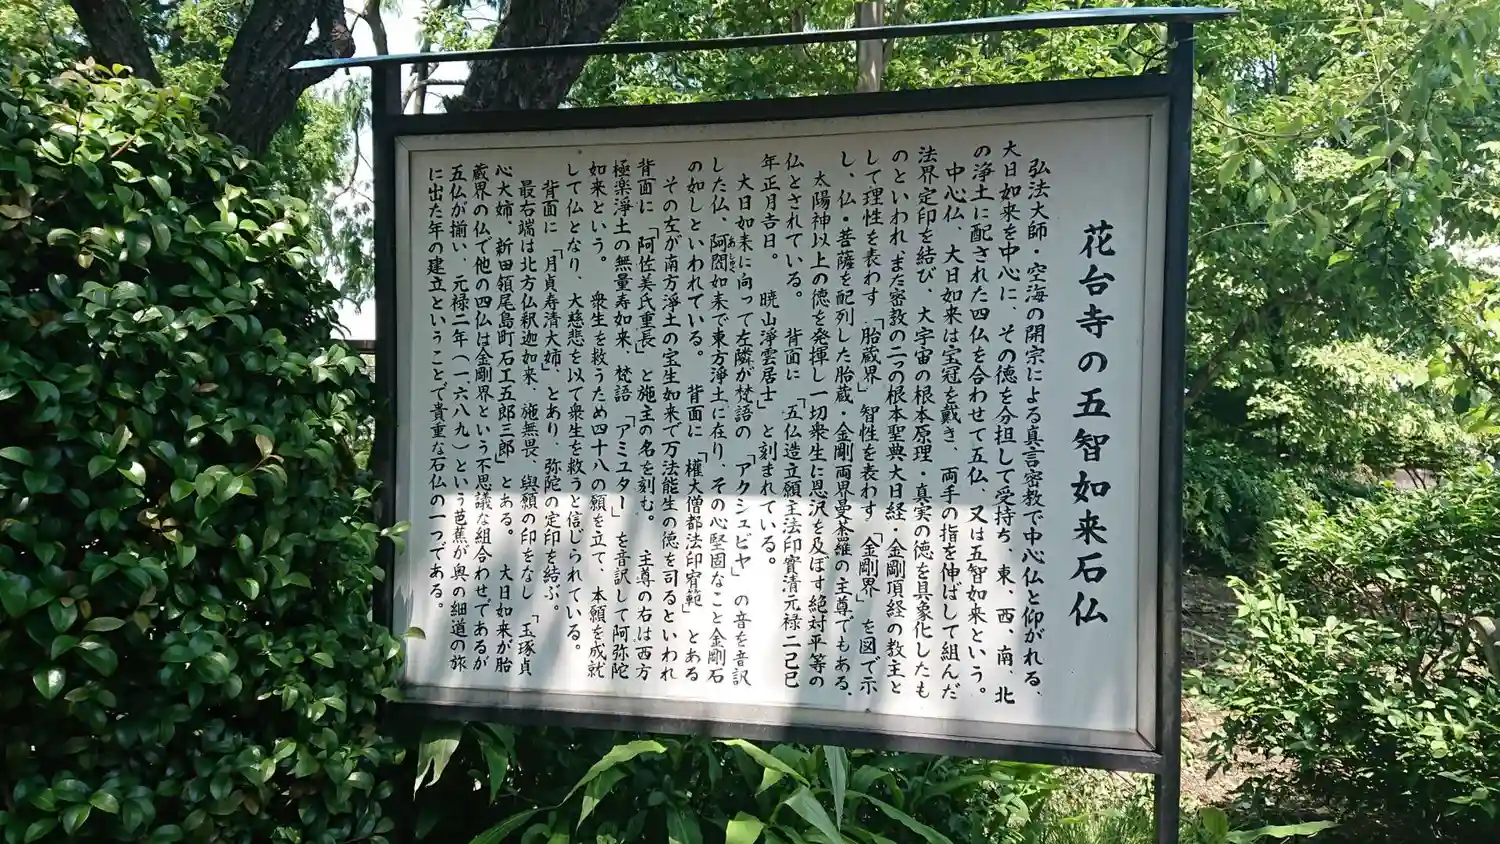 花台寺の五智如来石仏
弘法大師・空海の開宗による真言密教で中心仏と仰がれる、
大日如来を中心に、その徳を分担して受持ち、東、西、南、北
の浄土に配された四仏を合わせて五仏、又は五智如来という。
中心仏、大日如来は宝冠を戴き、両手の指を伸ばして組んだ
法界定印を結び、大宇宙の根本原理・真実の徳を具象化したも
のといわれ、また密教の二つの根本聖典大日経、金剛頂経の教主と
して理性を表わす「胎蔵界」智性を表わす「金剛界」を図で示
し、仏・菩薩を配列した胎蔵・金剛両界曼荼羅の主尊でもある、
太陽神以上の徳を発揮し一切衆生に恩沢を及ぼす絶対平等の
仏とされている。 背面に 「五仏造立願主法印實清元禄二己巳
年正月吉日。 暁山淨雲居士」と刻まれている。
大日如来に向って左隣が梵語の「アクシュビヤ」の音を音訳
した仏、阿閦如来で東方浄土に在り、その心堅固なこと金剛石
の如しといわれている。 背面に「權大僧都法印宥範」とある
その左が南方淨土の宝生如来で万法能生の徳を司るといわれ
背面に「阿佐美氏重長」と施主の名を刻む。 主尊の右は西方
極楽淨土の無量寿如来、梵語「アミユター」を音訳して阿弥陀
如来という。 衆生を救うため四十八の願を立て、本願を成就
して仏となり、大慈悲を以て衆生を救うと信じられている。
背面に「月貞寿清大姉」とあり、弥陀の定印を結ぶ。
最右端は北方仏釈迦如来、施無畏、與願の印をなし「玉琢貞
心大姉、新田領尾島町石工五郎三郎」とある。 大日如来が胎
蔵界の仏で他の四仏は金剛界という不思議な組合わせであるが
五仏が揃い、元禄二年（一六八九）という芭蕉が奥の細道の旅
に出た年の建立ということで貴重な石仏の一つである。